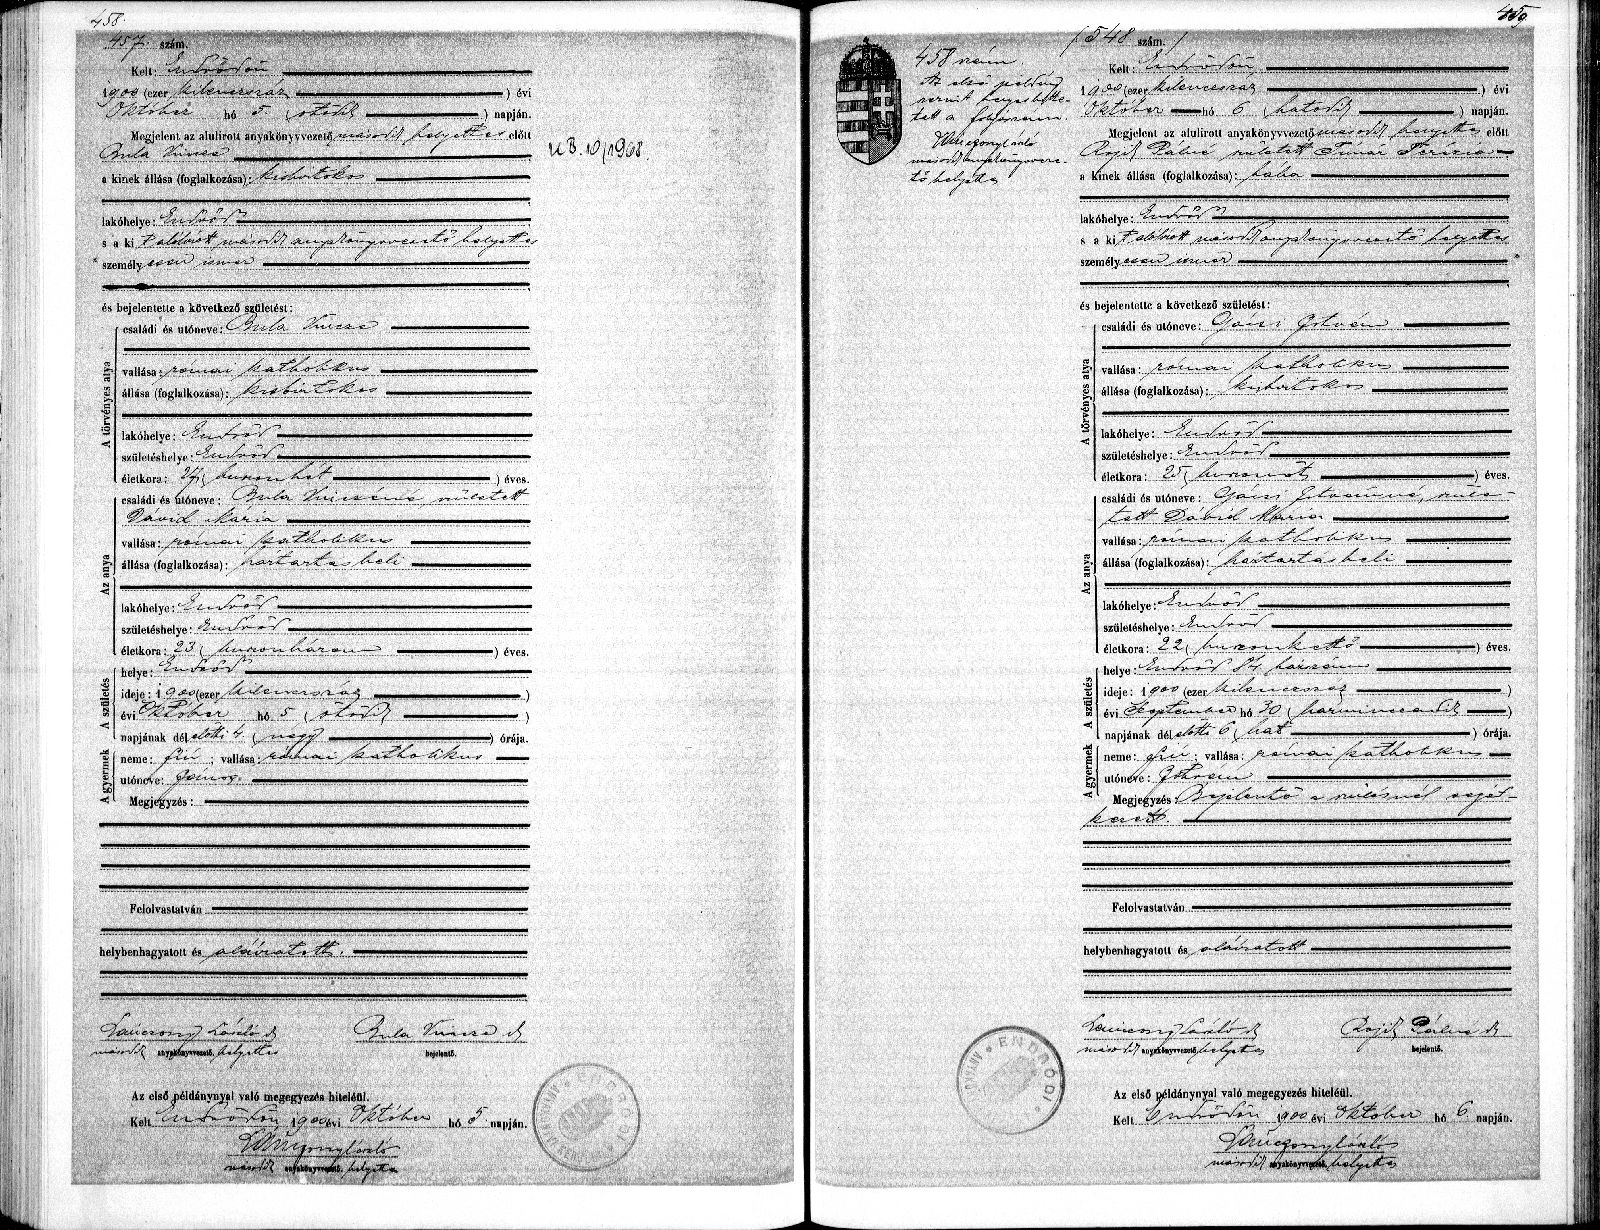 458.
457. szám.
Kelt: Endrődön
1900 (ezer kilenczszáz ) évi
Október hó 5. (ötödik ) napján.
Megjelent az alulirott anyakönyvvezető második helyettes előtt
Bula Vincze
a kinek állása (foglalkozása): kisbirtokos
lakóhelye: Endrőd
s a kit alólirott második anyakönyvvezető helyettes
személyesen ismer
és bejelentette a következő születést:
A törvényes atya
családi és utóneve: Bula Vincze
vallása: római katholikus
állása (foglalkozása): kisbirtokos
lakóhelye: Endrőd
születéshelye: Endrőd
életkora: 27 (huszonhét ) éves.
Az anya
családi és utóneve: Bula Vinczéné született
Dávid Mária
vallása: római katholikus
állása (foglalkozása): háztartásbeli
lakóhelye: Endrőd
születéshelye: Endrőd
életkora: 23 (huszonhárom ) éves.
A születés
helye: Endrőd
ideje: 1900 (ezer kilenczszáz )
évi Október hó 5 (ötödik )
napjának dél előtti 4 (négy ) órája.
A gyermek
neme: fiú; vallása: római katholikus
utóneve: János.
Megjegyzés:
Felolvastatván
helybenhagyatott és aláiratott.
László d
Bula Vincze d
második anyakönyvvezető, helyettes
bejelentő.
Az első példánynyal való megegyezés hiteléül.
Kelt Endrődön 1900 évi Október hó 5 napján.
László
második anyakönyvvezető, helyettes
10/1908.
459
548 szám.
458 szám.
Az első példány
szerint helyesbite-
tett a folyószám.
László
második anyakönyvveze-
tő helyettes
Kelt: Endrődön,
1900 (ezer kilenczszáz ) évi
Október hó 6 (hatodik ) napján.
Megjelent az alulirott anyakönyvvezető második helyettes előtt
Rojik Pálné született Tímár Terézia
a kinek állása (foglalkozása): bába
lakóhelye: Endrőd
s a kit alólirott második anyakönyvvezető helyettes
személyesen ismer
és bejelentette a következő születést:
A törvényes atya
családi és utóneve: Gózsi István
vallása: római katholikus
állása (foglalkozása): kisbirtokos
lakóhelye: Endrőd
születéshelye: Endrőd
életkora: 25 (huszonöt ) éves.
Az anya
családi és utóneve: Istvánné, szüle-
tett Dávid Mária
vallása: római katholikus
állása (foglalkozása): háztartásbeli
lakóhelye: Endrőd
születéshelye: Endrőd
életkora: 22 (huszonkettő ) éves.
A születés
helye: Endrőd 84 házszám
ideje: 1900 (ezer kilenczszáz )
évi Szeptember hó 30 (harminczadik )
napjának dél előtti 6 (hat ) órája.
A gyermek
neme: fiú; vallása: római katholikus
utóneve: István
Megjegyzés: Bejelentő a szülésnél segéd-
kezett.
Felolvastatván
helybenhagyatott és aláiratott
László d
Rojik Pálné d
második anyakönyvvezető, helyettes
bejelentő.
Az első példánynyal való megegyezés hiteléül.
Kelt Endrődön 1900 évi Október hó 6 napján.
László
második anyakönyvvezető, helyettes
ENDRŐDI
ENDRŐDI